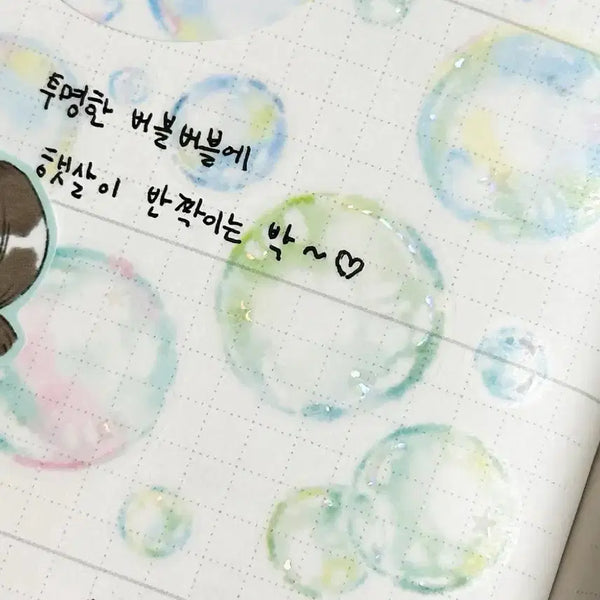 투명한 버블버블에
햇살이 반짝이는 박~♡